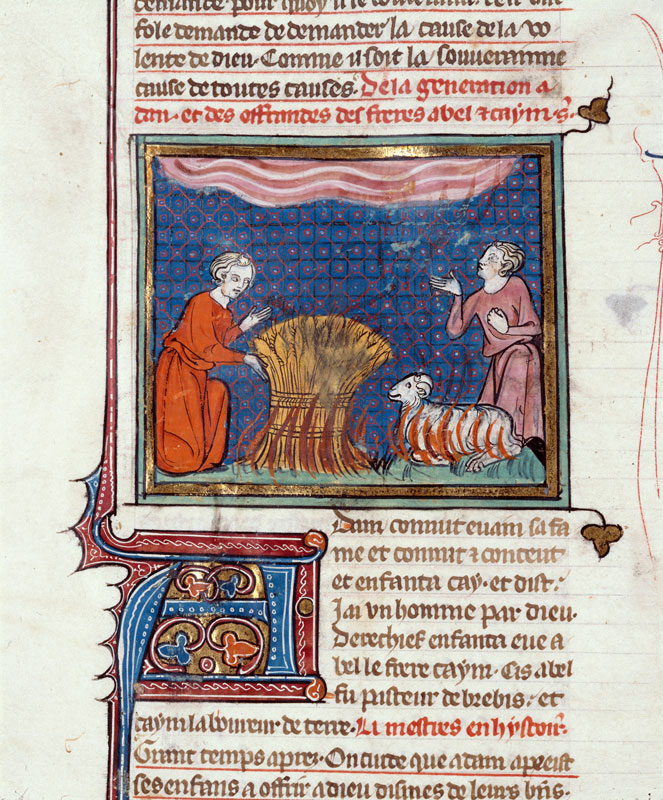 fole demande de demander la cause de la vo
lente de dieu. Comme il soit la souueraine
cause de toutes causes. De la generation a
dam. et des offrandes des freres abel & caym. s.
Dam connut euam sa fa
me et connut & conceut
et enfanta cay. et dist.
Iai un homme par dieu.
Derechief enfanta eue a
bel le frere caym. Cis abel
fu pasteur de brebis. et
caym laboureur de terre. Li mestres en hystoir.
Grant temps apres. On cuide que adam aprist
ses enfans a offrir a dieu dismes de leurs bns.